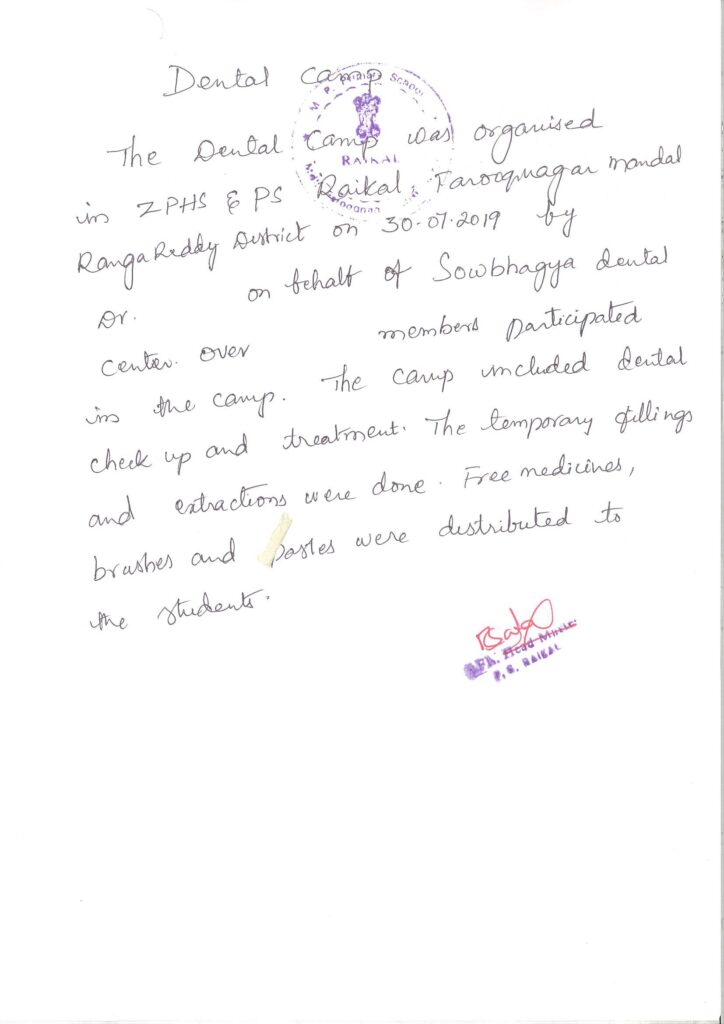 Dental Camp
M.P. Primary School
RAIKAL
The Dental Camp was organised
in ZPHS & PS Raikal, Farooqnagar mandal
RangaReddy District on 30-07-2019 by
Dr. on behalf of Sowbhagya dental
center. over members participated
in the camp. The camp included dental
check up and treatment. The temporary fillings
and extractions were done. Free medicines,
brushes and pastes were distributed to
the students.
Head
P.S. RAIKAL